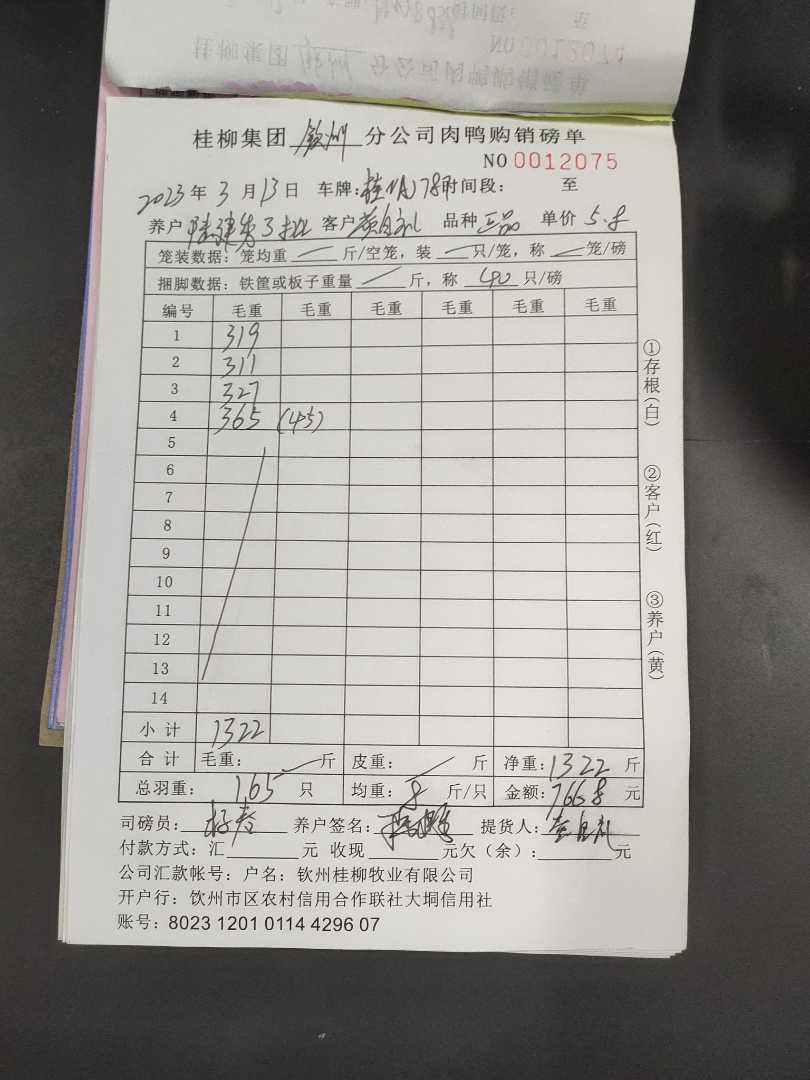 桂柳集团 钦州 分公司肉鸭购销磅单
NO 0012075
2023 年 3 月 13 日 车牌: 时间段: 至
养户 客户 黄自礼 品种 正品 单价 5.8
笼装数据: 笼均重 斤/空笼, 装 只/笼, 称 笼/磅
捆脚数据: 铁筐或板子重量 斤, 称 40 只/磅
编号 毛重 毛重 毛重 毛重 毛重 毛重
1 319
2 311
3 327
4 365 (45)
5
6
7
8
9
10
11
12
13
14
小计 1322
合计 毛重: 斤 皮重: 斤 净重: 1322 斤
总羽重: 165 只 均重: 8 斤/只 金额: 7668 元
司磅员: 养户签名: 提货人: 黄自礼
付款方式: 汇 元 收现 元欠(余): 元
公司汇款帐号: 户名: 钦州桂柳牧业有限公司
开户行: 饮州市区农村信用合作联社大垌信用社
账号: 8023 1201 0114 4296 07
①存根(白)
②客户(红)
③养户(黄)